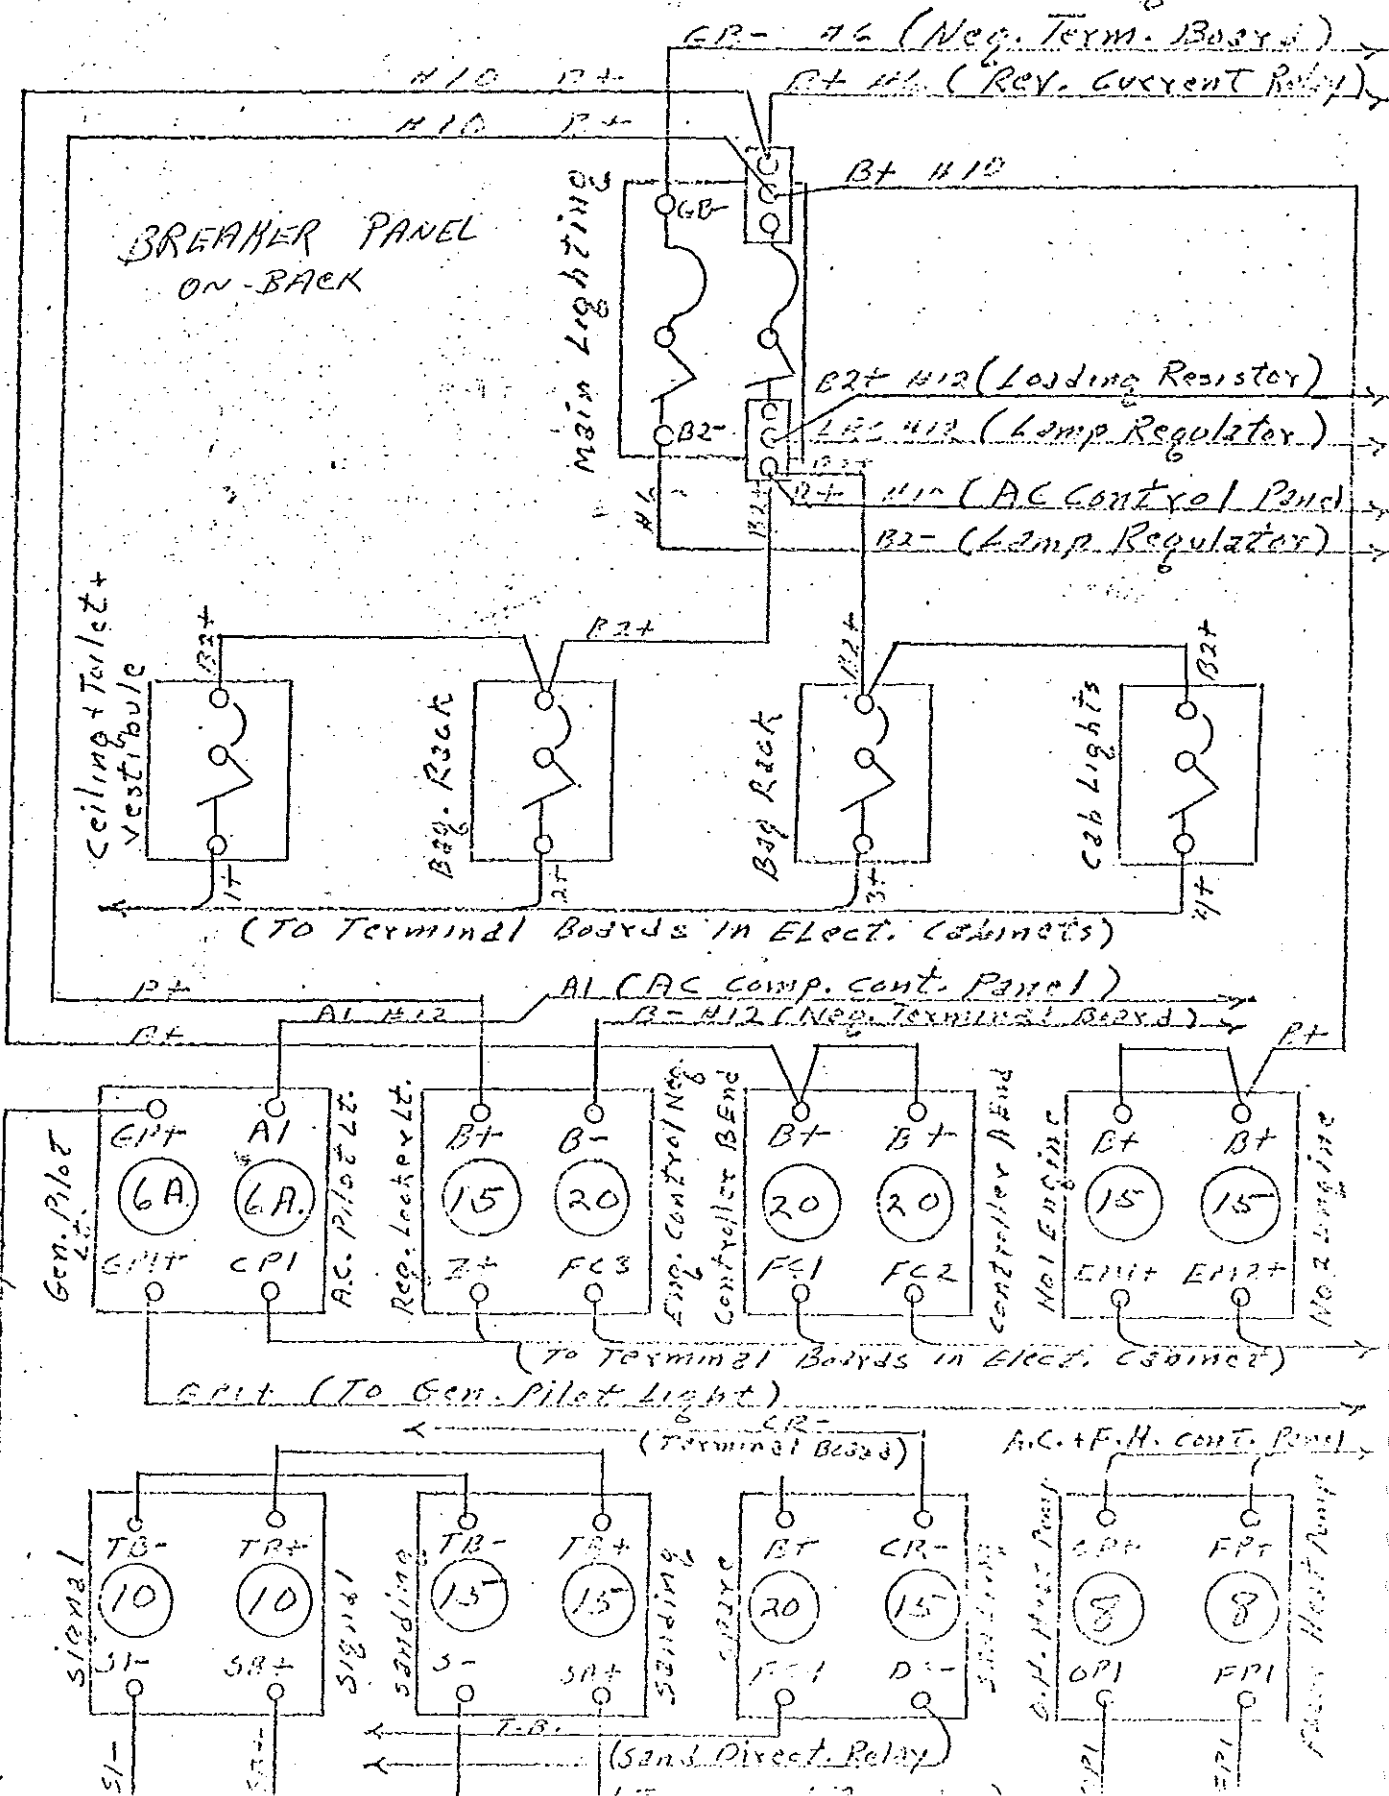 GB- #6 (Neg. Term. Board)
#10 B+
B+ #6 (Rev. Current Relay)
#10 B+
B+ #10
BREAKER PANEL
ON-BACK
Main Lighting
GB-
B2+ #12 (Loading Resistor)
B2-
#12 (Lamp Regulator)
B2+
B+ (AC Control Panel
#6
B2+
B2- (Lamp Regulator)
Ceiling + Toilet +
Vestibule
B2+
B2+
B2+
B2+
Bag. Rack
Bag Rack
Cab Lights
1+
2+
3+
4+
(To Terminal Boards in Elect. Cabinets)
B+
A1 (AC Comp. Cont. Panel)
A1 #12
B- #12 (Neg. Terminal Board)
B+
B+
Gen. Pilot
Lt.
GP+
A1
6A.
6A.
GP1+
CP1
A.C. Pilot Lt.
Reg. Locker Lt.
B+
B-
15
20
Z+
FC3
Eng. Control Neg.
Controller B End
B+
B+
20
20
FC1
FC2
Controller A End
No1 Engine
B+
B+
15
15
EM1+
EM2+
No. 2 Engine
(To Terminal Boards in Elect. Cabinet)
GP1+ (To Gen. Pilot Light)
CR-
(Terminal Board)
A.C.+F.H. Cont. Panel
Signal
TB-
TB+
10
10
S1-
SB+
Signal
Sanding
TB-
TB+
15
15
S-
SB+
Sanding
Spare
B+
CR-
20
15
Sanding
O.H. Heat Pump
FP+
8
8
OP1
FP1
Floor Heat Pump
T.B.
(Sand Direct. Relay)
S1-
SB+
OP1
FP1